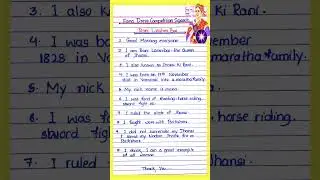 Fancy Dress Competition Speech
Rani Lakshmi Bai
1. Good Morning everyone.
2. I am Rani Laxmibai the Queen
of Jhansi.
3. I also known as Jhansi Ki Rani.
4. I was born in 19th November
1828 in Varanasi into a maratha family.
5. My nick name is manu.
6. I was fond of reading, horse riding,
sword fight etc.
7. I ruled the state of Jhansi.
8. I fought with Britishers.
9. I did not surrender my Jhansi
10. I think, I am a great example
of all women.
Thank You
3. I also k
4. I was b
1828 in
5. My nick
6. I was fo
sword fight
7. I ruled
Ki Rani.
ovember
maratha family.
horse riding,
Jhansi.